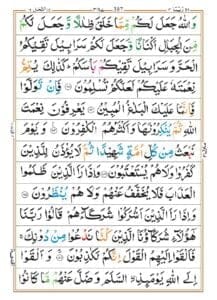 وَاللّٰهُ جَعَلَ لَكُمْ مِّمَّا خَلَقَ ظِلٰلًا وَّجَعَلَ لَكُمْ
مِّنَ الْجِبَالِ اَكْنَانًا وَّجَعَلَ لَكُمْ سَرَابِيْلَ تَقِيْكُمُ
الْحَرَّ وَسَرَابِيْلَ تَقِيْكُمْ بَاْسَكُمْ ؕ كَذٰلِكَ يُتِمُّ
نِعْمَتَهٗ عَلَيْكُمْ لَعَلَّكُمْ تُسْلِمُوْنَ ۝ فَاِنْ تَوَلَّوْا
فَاِنَّمَا عَلَيْكَ الْبَلٰغُ الْمُبِيْنُ ۝ يَعْرِفُوْنَ نِعْمَتَ
اللّٰهِ ثُمَّ يُنْكِرُوْنَهَا وَاَكْثَرُهُمُ الْكٰفِرُوْنَ ۝ وَيَوْمَ
نَبْعَثُ مِنْ كُلِّ اُمَّةٍ شَهِيْدًا ثُمَّ لَا يُؤْذَنُ لِلَّذِيْنَ
كَفَرُوْا وَلَا هُمْ يُسْتَعْتَبُوْنَ ۝ وَاِذَا رَاَ الَّذِيْنَ ظَلَمُوا
الْعَذَابَ فَلَا يُخَفَّفُ عَنْهُمْ وَلَا هُمْ يُنْظَرُوْنَ ۝
وَاِذَا رَاَ الَّذِيْنَ اَشْرَكُوْا شُرَكَآءَهُمْ قَالُوْا رَبَّنَا
هٰۤؤُلَآءِ شُرَكَآؤُنَا الَّذِيْنَ كُنَّا نَدْعُوْا مِنْ دُوْنِكَ ۚ
فَاَلْقَوْا اِلَيْهِمُ الْقَوْلَ اِنَّكُمْ لَكٰذِبُوْنَ ۝ وَاَلْقَوْا
اِلَى اللّٰهِ يَوْمَئِذِ ۨالسَّلَمَ وَضَلَّ عَنْهُمْ مَّا كَانُوْا